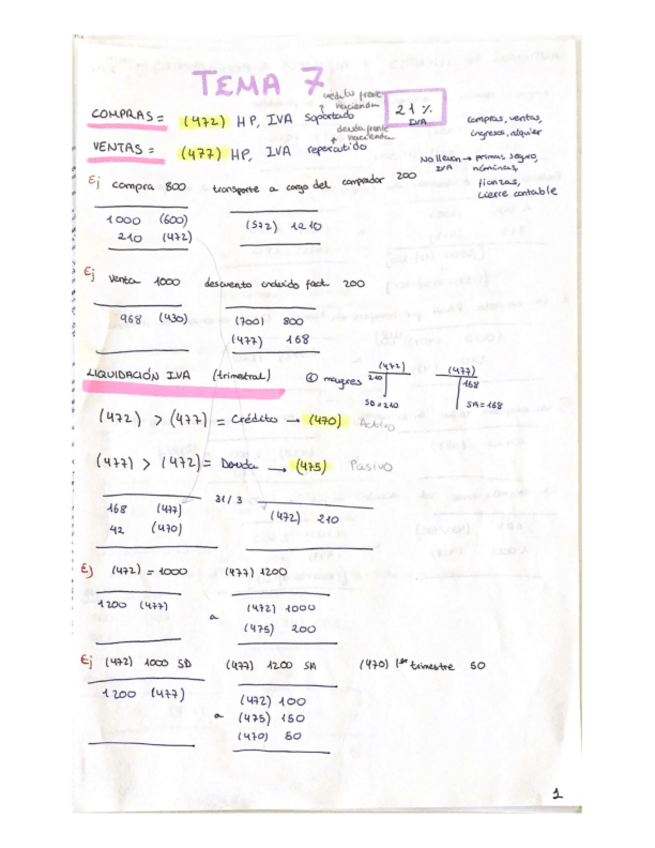 TEMA 7
crédito frente
hacienda
COMPRAS = (472) HP, IVA Soportado
21%
IVA
compras, ventas,
ingresos, alquiler
deuda frente
hacienda
VENTAS = (477) HP, IVA repercutido
No llevan → primas seguro,
IVA nóminas,
fianzas,
cierre contable
Ej compra 800 transporte a cargo del comprador 200
1000 (600)
210 (472)
(572) 1210
Ej venta 1000 descuento incluido fact 200
968 (430)
(700) 800
(477) 168
LIQUIDACIÓN IVA (trimestral)
① mayores
(472)
210
SD = 210
(477)
168
SA = 168
(472) > (477) = Crédito → (470) Activo
(477) > (472) = Deuda → (475) Pasivo
31/3
168 (477)
42 (470)
(472) 210
Ej (472) = 1000 (477) 1200
1200 (477)
a
(472) 1000
(475) 200
Ej (472) 1000 SD (477) 1200 SA (470) 1er trimestre 50
1200 (477)
a
(472) 100
(475) 150
(470) 50
1